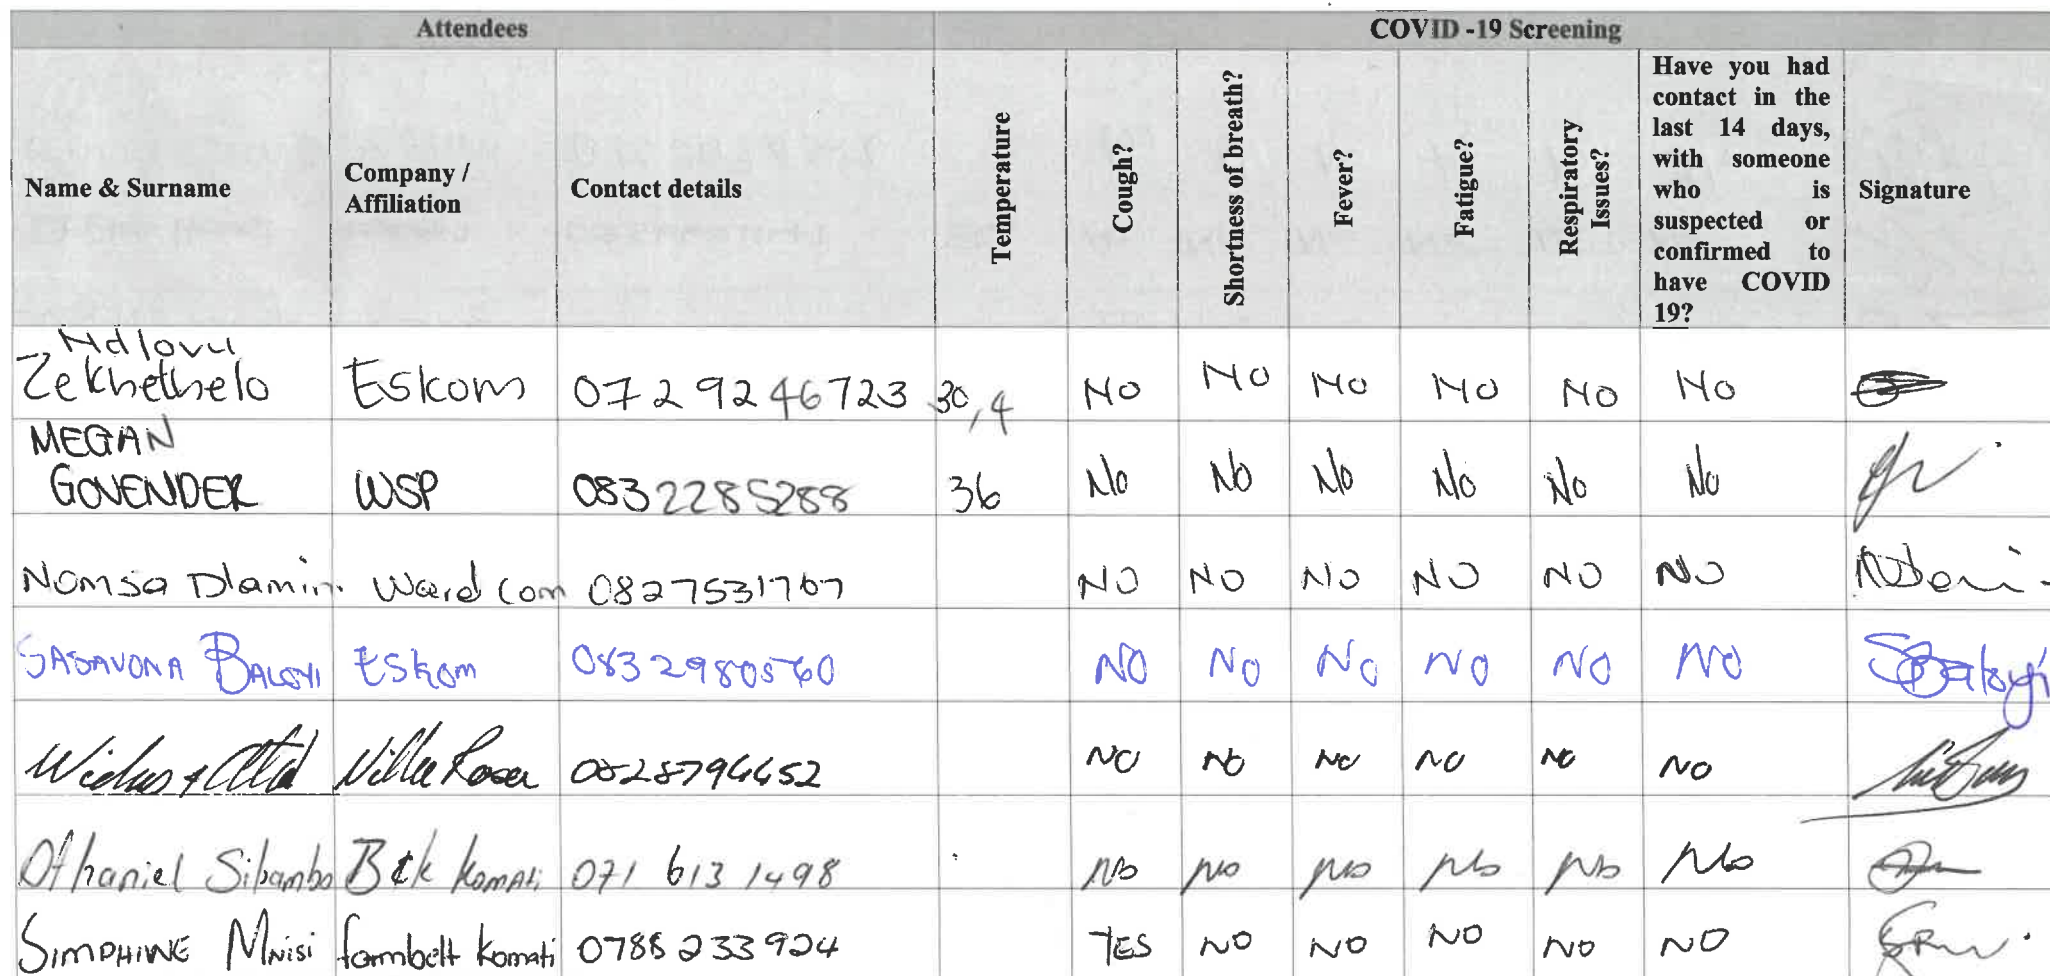 Attendees COVID -19 Screening
Name & Surname Company / Affiliation Contact details Temperature Cough? Shortness of breath? Fever? Fatigue? Respiratory Issues? Have you had contact in the last 14 days, with someone who is suspected or confirmed to have COVID 19? Signature
Ndlovu
Zekhethelo Eskom 0729246723 30,4 No No No No No No
MEGAN
GOVENDER WSP 0832285288 36 No No No No No No
Nomsa Dlamini Ward Com 0827531767 NO NO NO NO NO NO
SASAVONA BALOYI Eskom 0832980560 NO NO NO NO NO NO SBaloyi
0828794652 NO NO NO NO NO NO
Othaniel Sibambo B&K Komati 071 613 1498 No No No No No No
SIMPHIWE Mnisi Komati 0788233924 YES NO NO NO NO NO